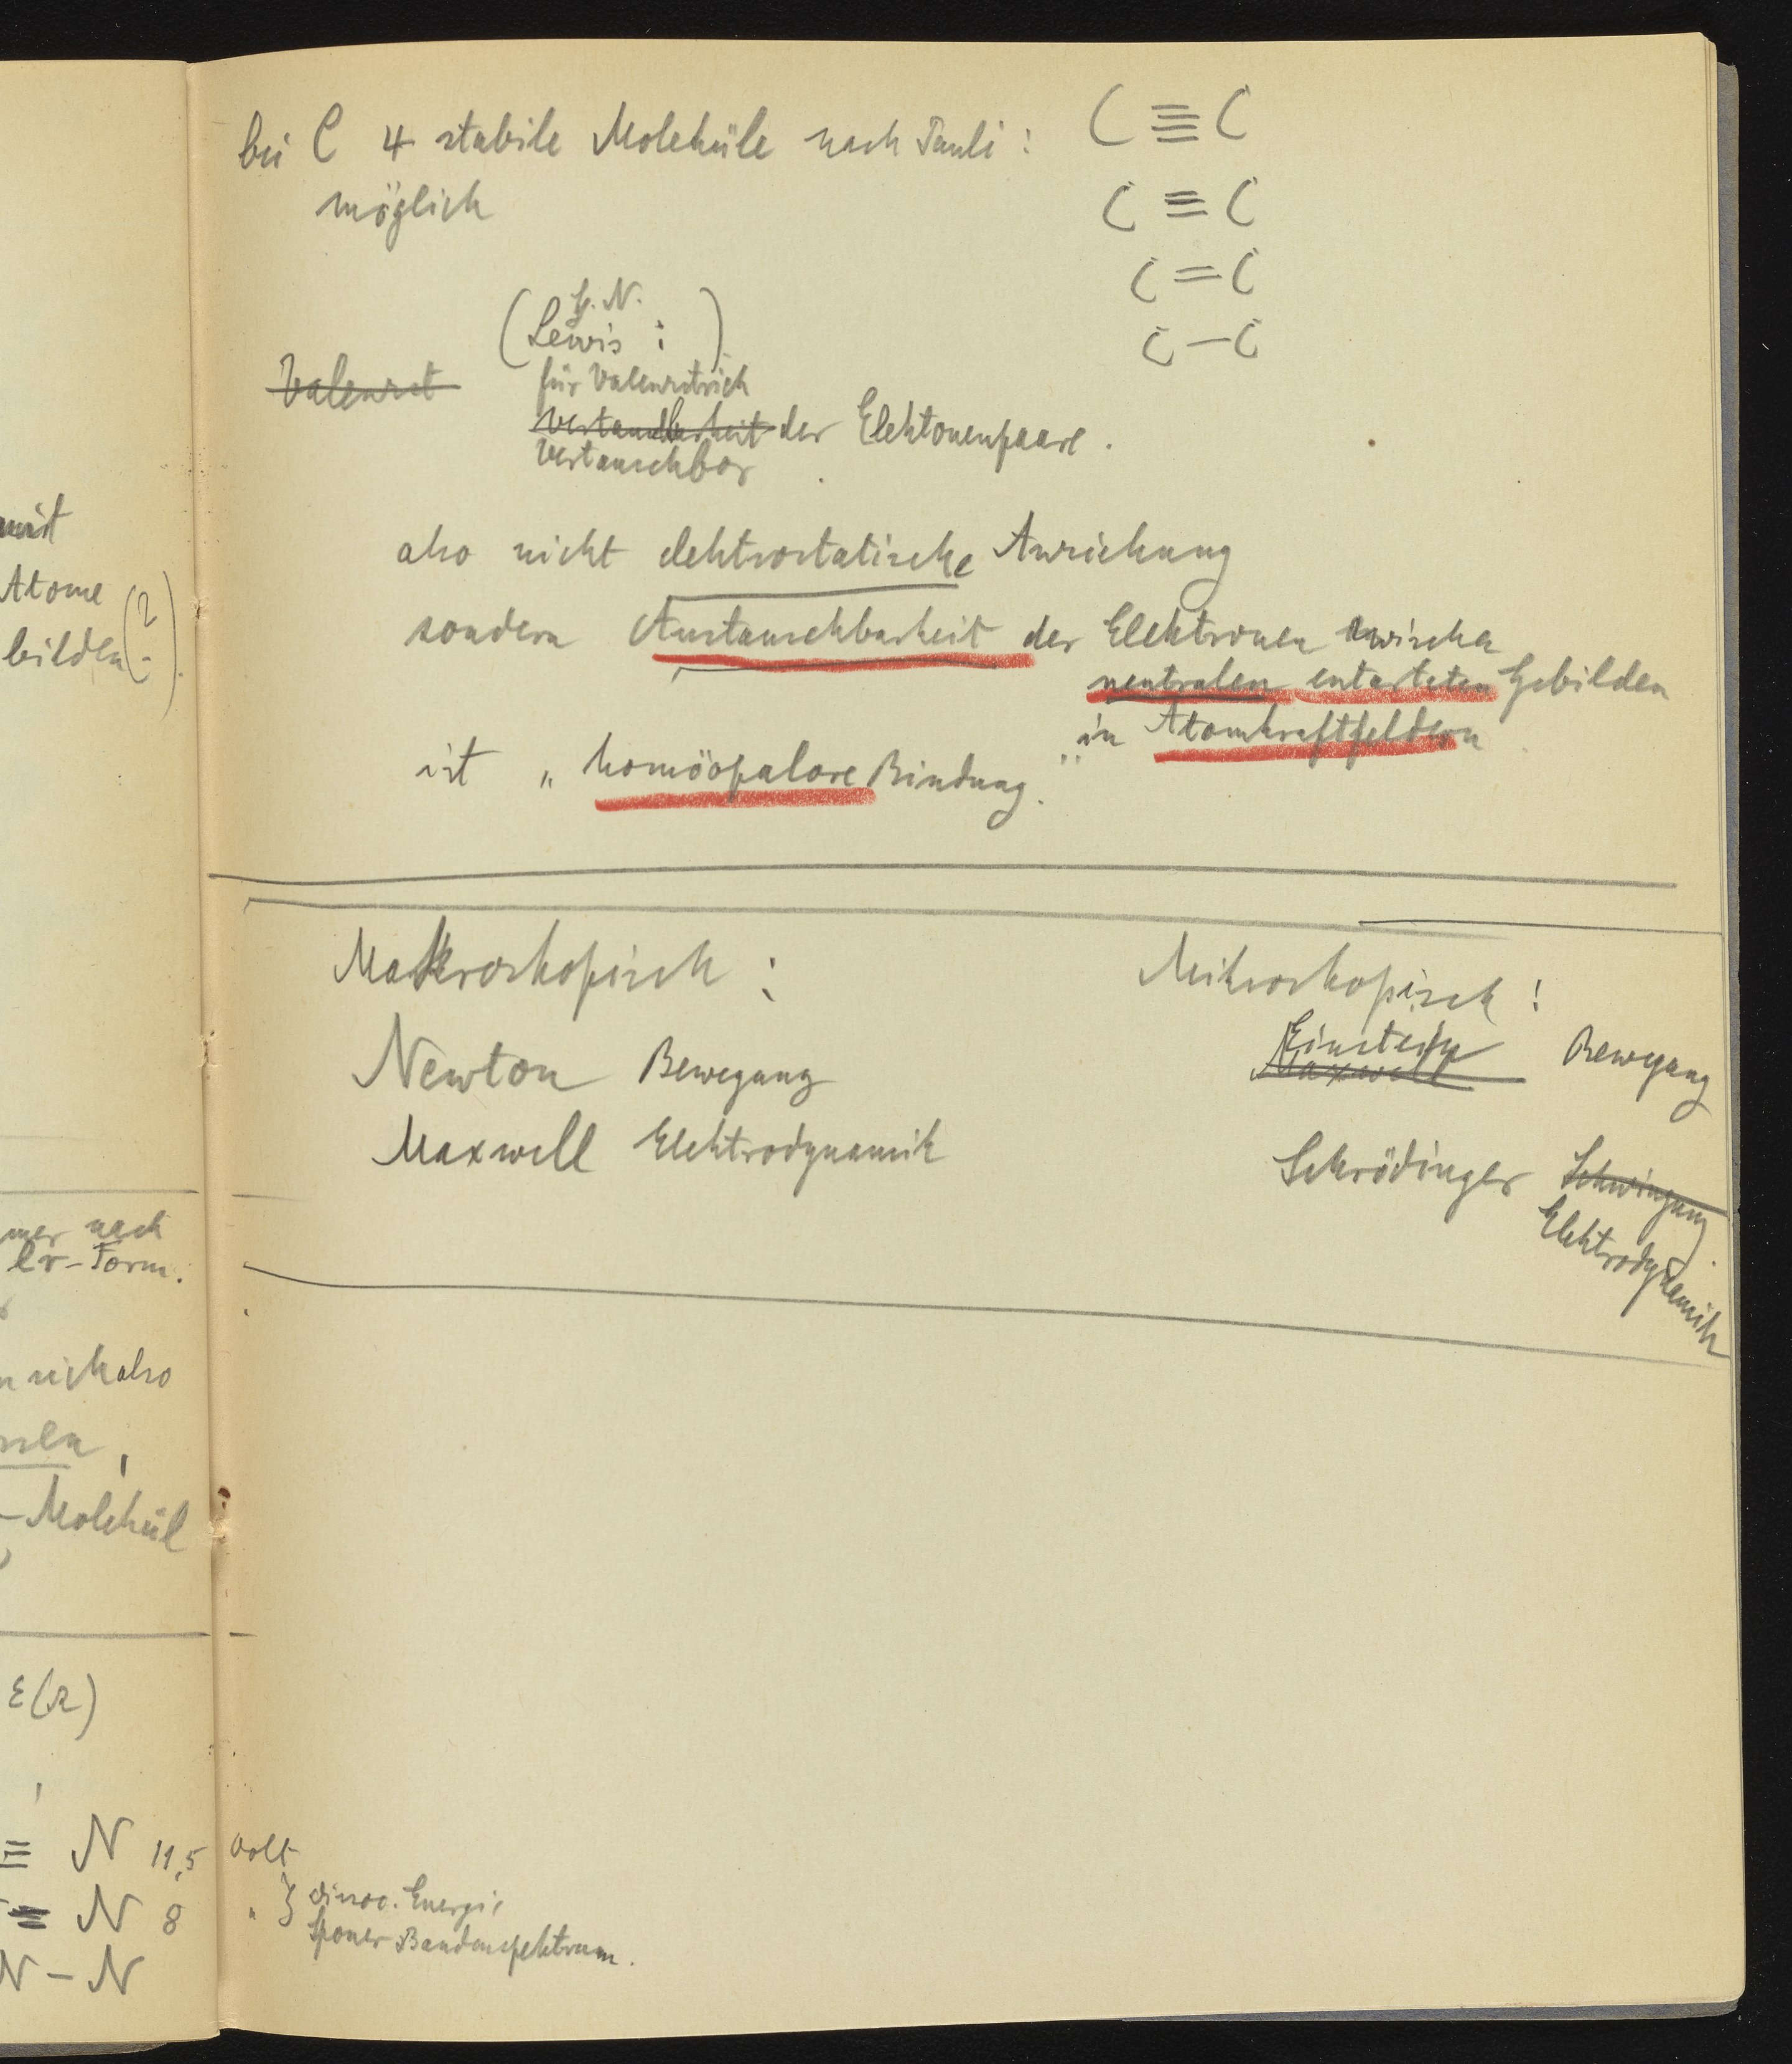 bei C 4 stabile Moleküle nach Pauli :
möglich
C ≣ C
C ≡ C
C = C
C – C
( G. N.
Lewis : )
Valenzst
für Valenzstrich
der Elektonenpaare .
Vertauschbar
also nicht elektrostatische Anziehung
sondern Austauschbarkeit der Elektronen zwischen
neutralen entarteten Gebilden
in Atomkraftfeldern
ist „ homöopolare Bindung. "
Makroskopisch :
Newton Bewegung
Maxwell Elektrodynamik
Mikroskopisch :
Einstein Bewegung
Maxwell
Schrödinger Schwingung
Elektrodynamik
mit
Atome
bilden (?)
nach
er-Form.
sich also
- Molekül
ε(r)
≡ N 11,5 Volt
= N 8 " } dissoc. Energie
Sponer Bandenspektrum.
N – N